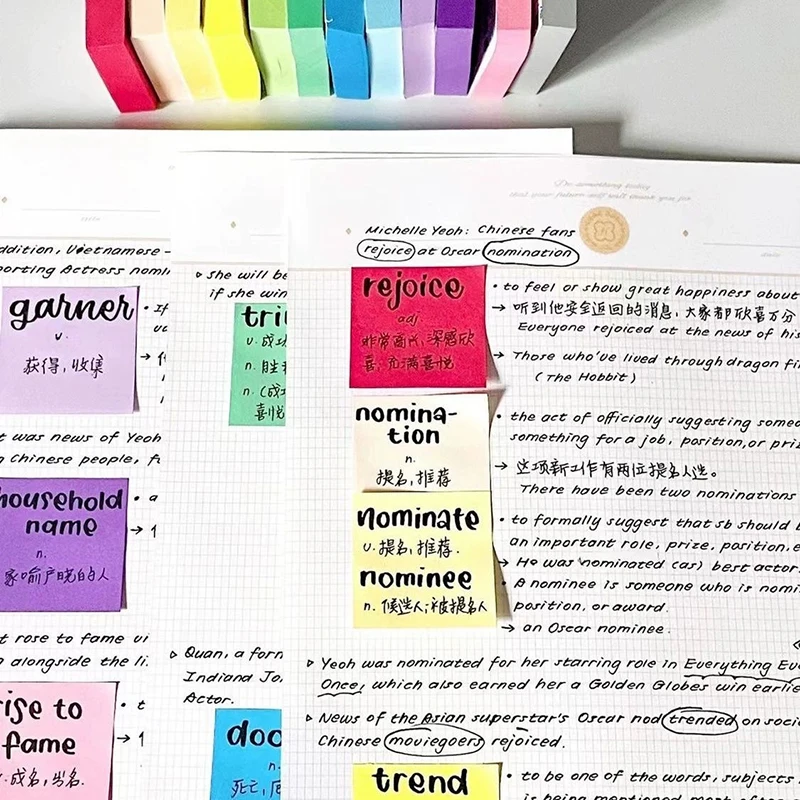 Do something today
that your future self will thank you for
date
date
Michelle Yeoh: Chinese fans
rejoice at Oscar nomination
rejoice
adj.
非常高兴,深感欣
喜,充满喜悦
• to feel or show great happiness about
→ 听到他安全返回的消息,大家都欣喜万分
Everyone rejoiced at the news of his
→ Those who've lived through dragon fi
(The Hobbit)
nomina-
tion
n.
提名,推荐
• the act of officially suggesting someo
something for a job, position, or priz
→ 这项新工作有两位提名人选。
There have been two nominations
nominate
v. 提名,推荐.
nominee
n. 候选人;被提名人
• to formally suggest that sb should b
an important role, prize, position, e
→ He was nominated (as) best actor
• A nominee is someone who is nomi
position, or award.
→ an Oscar nominee.
▹ Yeoh was nominated for her starring role in Everything Eve
Once, which also earned her a Golden Globes win earlie
▹ News of the Asian superstar's Oscar nod trended on soci
Chinese moviegoers rejoiced.
trend
• to be one of the words, subjects
is being mentioned most often
▹ She will be
if she win
v. 成功
n.
n.
喜悦
▹ Quan, a form
Indiana Jo
Actor.
doo
死亡,厄
ddition, Vietnamese-
porting Actress nomi
garner
v.
获得,收集
• If
t was news of Yeoh
n Chinese people, f
household
name
n.
家喻户晓的人
• a
t rose to fame vi
n alongside the li
rise to
fame
v. 成名,出名.
• t